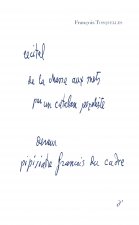 François Tosquelles
récital
de la chasse aux mots
par un catalan psychiste
devenu
français du cadre